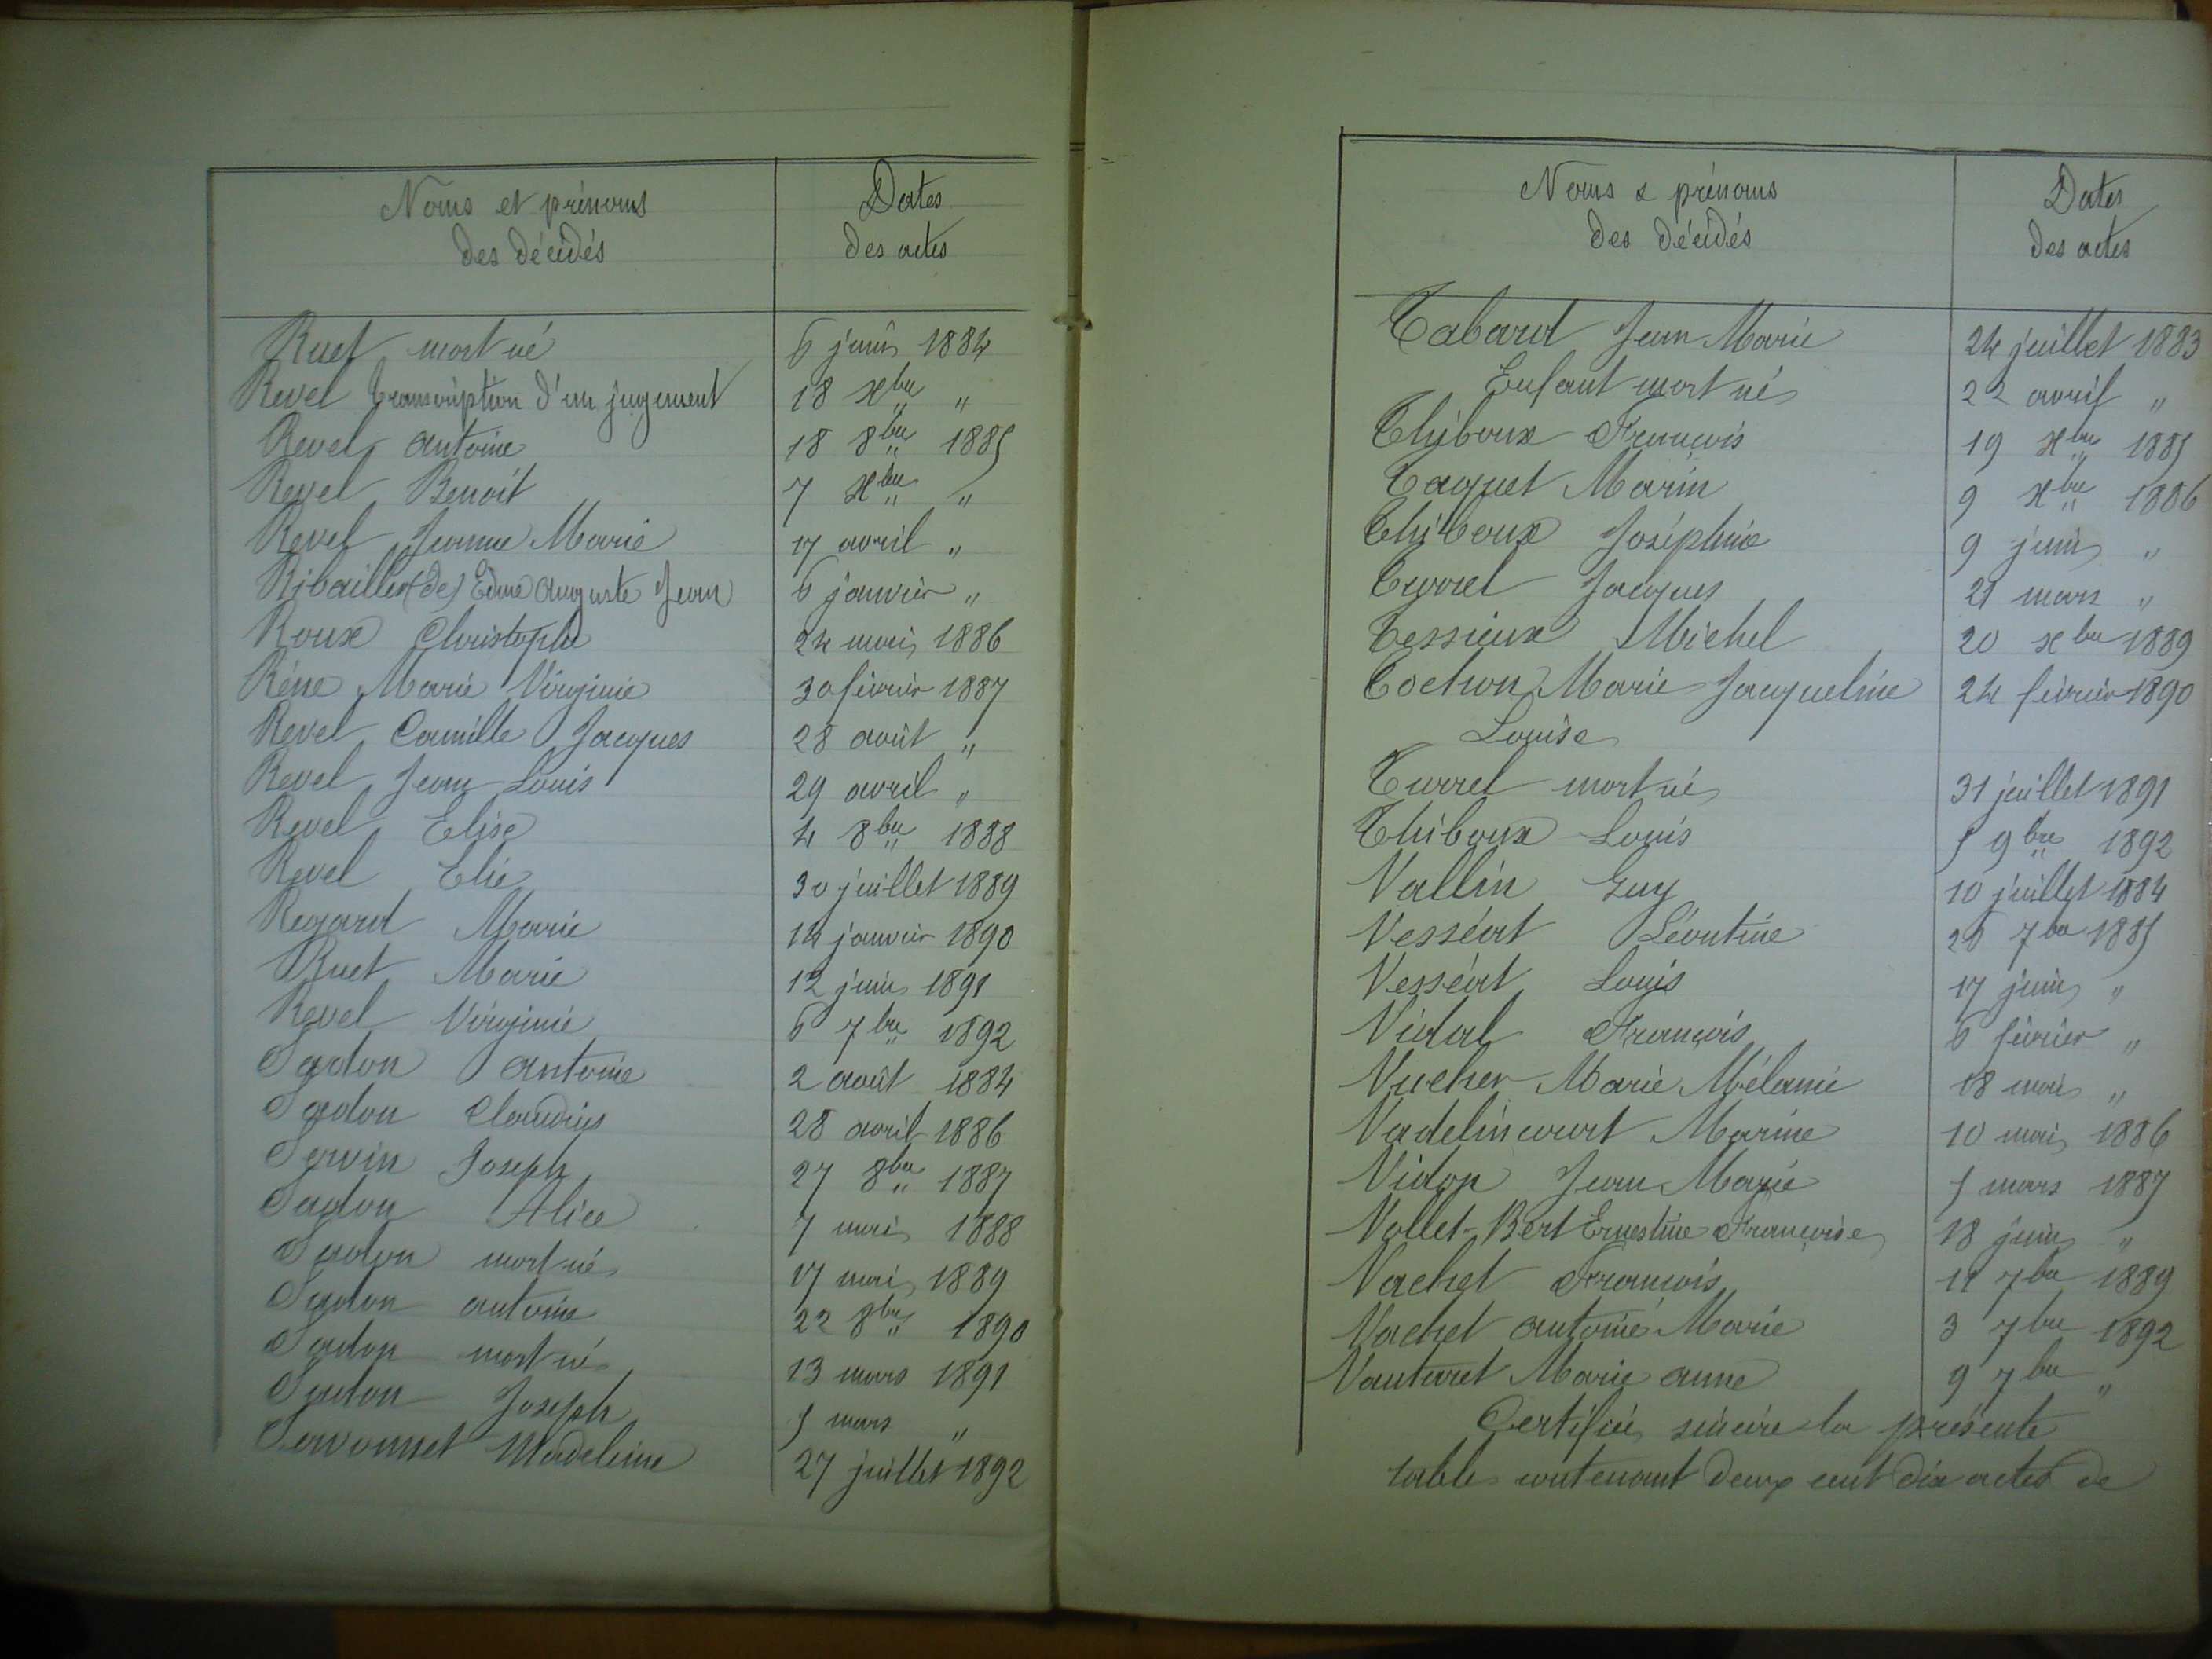 Noms et prénoms
des décédés
Dates
des actes
Ruet mort né 6 juin 1884
Revel transcription d'un jugement 18 xbre "
Revel antoine 18 8bre 1885
Revel Benoit 7 xbre "
Revel Jeanne Marie 17 avril "
Ribaillier (de) Edme Auguste Jean 6 janvier "
Roux Christophe 24 mai 1886
Réne Marie Virginie février 1887
Revel Camille Jacques 28 août "
Revel Jean Louis 29 avril "
Revel Elise 4 8bre 1888
Revel Elie 30 juillet 1889
Regard Marie 14 janvier 1890
Ruet Marie 12 juin 1891
Revel Virginie 6 7bre 1892
Sadon Antoine 2 août 1884
Sadon Claudius 28 avril 1886
Servin Joseph 27 8bre 1887
Sadon Alice 7 mai 1888
Sadon mort né 17 mai 1889
Sadon antoine 22 8bre 1890
Sadon mort né 13 mars 1891
Sadon Joseph 5 mars "
Servonnet Madeleine 27 juillet 1892
Noms & prénoms
des décédés
Dates
des actes
Tabard Jean Marie 24 juillet 1883
Enfant mort né 22 avril "
Thiboux François 19 xbre 1885
Taquet Marin 9 xbre 1886
Thiboux Joséphine 9 juin "
Turrel Jacques 21 mars "
Tessieux Michel 20 xbre 1889
Tochon Marie Jacqueline 24 février 1890
Louise
Turrel mort né 31 juillet 1891
Thiboux Louis 5 9bre 1892
Vallin Guy 10 juillet 1884
Vesséat Léontine 7bre 1885
Vesséat Louis 17 juin "
Vidal François 6 février "
Vucher Marie Mélanie 18 mai "
Vadelincourt Marine 10 mai 1886
Vidon Jean Marie 5 mars 1887
Vollet-Bert Ernestine Françoise 18 juin "
Vachet François 11 7bre 1889
Vachet antoine Marie 3 7bre 1892
Vauturet Marie anne 9 7bre "
Certifiée sincère la présente
table contenant deux cent dix actes de